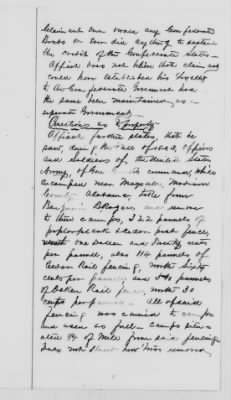 Claimant ever owned any Confederate
Bonds or ever did anything to sustain
the credit of the Confederate States—
Affiant does not think that claimant
could have established his loyalty
to the Confederate Government had
the same been maintained as a
separate Government.
Questions as to property
Affiant further states, that he
saw, during the Fall of 1863, Officers
and Soldiers of the United States
Army, of Gen command, while
encamped near Maysville, Madison
County Alabama, take from
Benjamin Rogers and
to their camps, 322 pannels of
poplar plank & cedar post fence,
worth one Dollar and twenty cents
per pannel, also 114 pannels of
Cedar Rail fencing, worth sixty
cents per pannel, and pannels
of Oaken Rail fence, worth 30
cents per pannel— All of said
fencing was carried to camps
and used as fuel— camps situ-
ated 1/4 of mile from said fencing
Does not how was removed